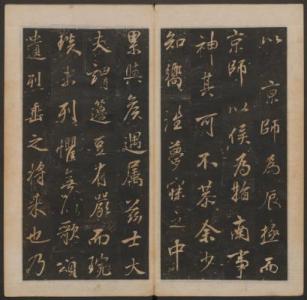 以 京師為辰極而
京師以侯為指南事
神其可不恭余少
知嚮往夢寐之中
累與侯遇屬茲士大
夫謂籩豆有嚴而琬
琰未列懼無以歌頌
遺烈垂之將來也乃